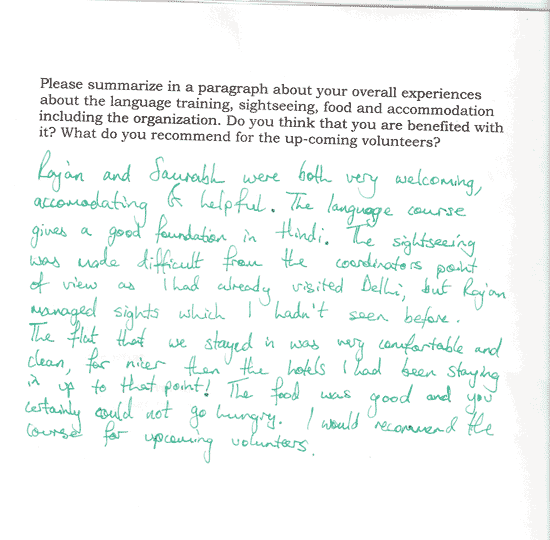 Please summarize in a paragraph about your overall experiences
about the language training, sightseeing, food and accommodation
including the organization. Do you think that you are benefited with
it? What do you recommend for the up-coming volunteers?
Rajan and Saurabh were both very welcoming,
accomodating & helpful. The language course
gives a good foundation in Hindi. The sightseeing
was made difficult from the coordinators point
of view as I had already visited Delhi, but Rajan
managed sights which I hadn't seen before.
The flat that we stayed in was very comfortable and
clean, far nicer then the hotels I had been staying
in up to that point! The food was good and you
certainly could not go hungry. I would recommend the
course for upcoming volunteers.